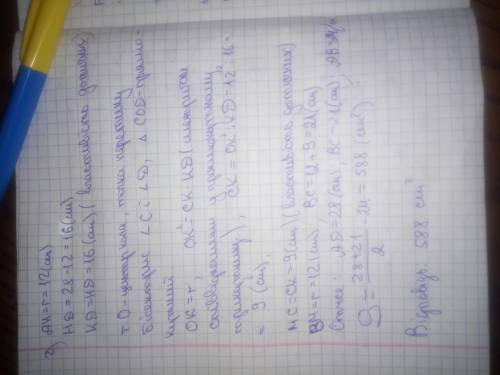 2) AH=r=12(см)
HD=28-12=16(см)
KD=HD=16(см) (властивість дотичних)
т.О-центр кола, точка перетину
бісектрис ∠C і ∠D, Δ COD-прямо-
кутний
OK=r, OK²=CK·KD (метричні
співвідношення у прямокутному
трикутнику), CK=OK²:KD=12²:16=
=9(см),
MC=CK=9(см) (властивість дотичних)
BM=r=12(см), BC=12+9=21(см)
Отже: AD=28(см), BC=21(см);
S=(28+21)/2·24=588(см²)
Відповідь: 588 см²